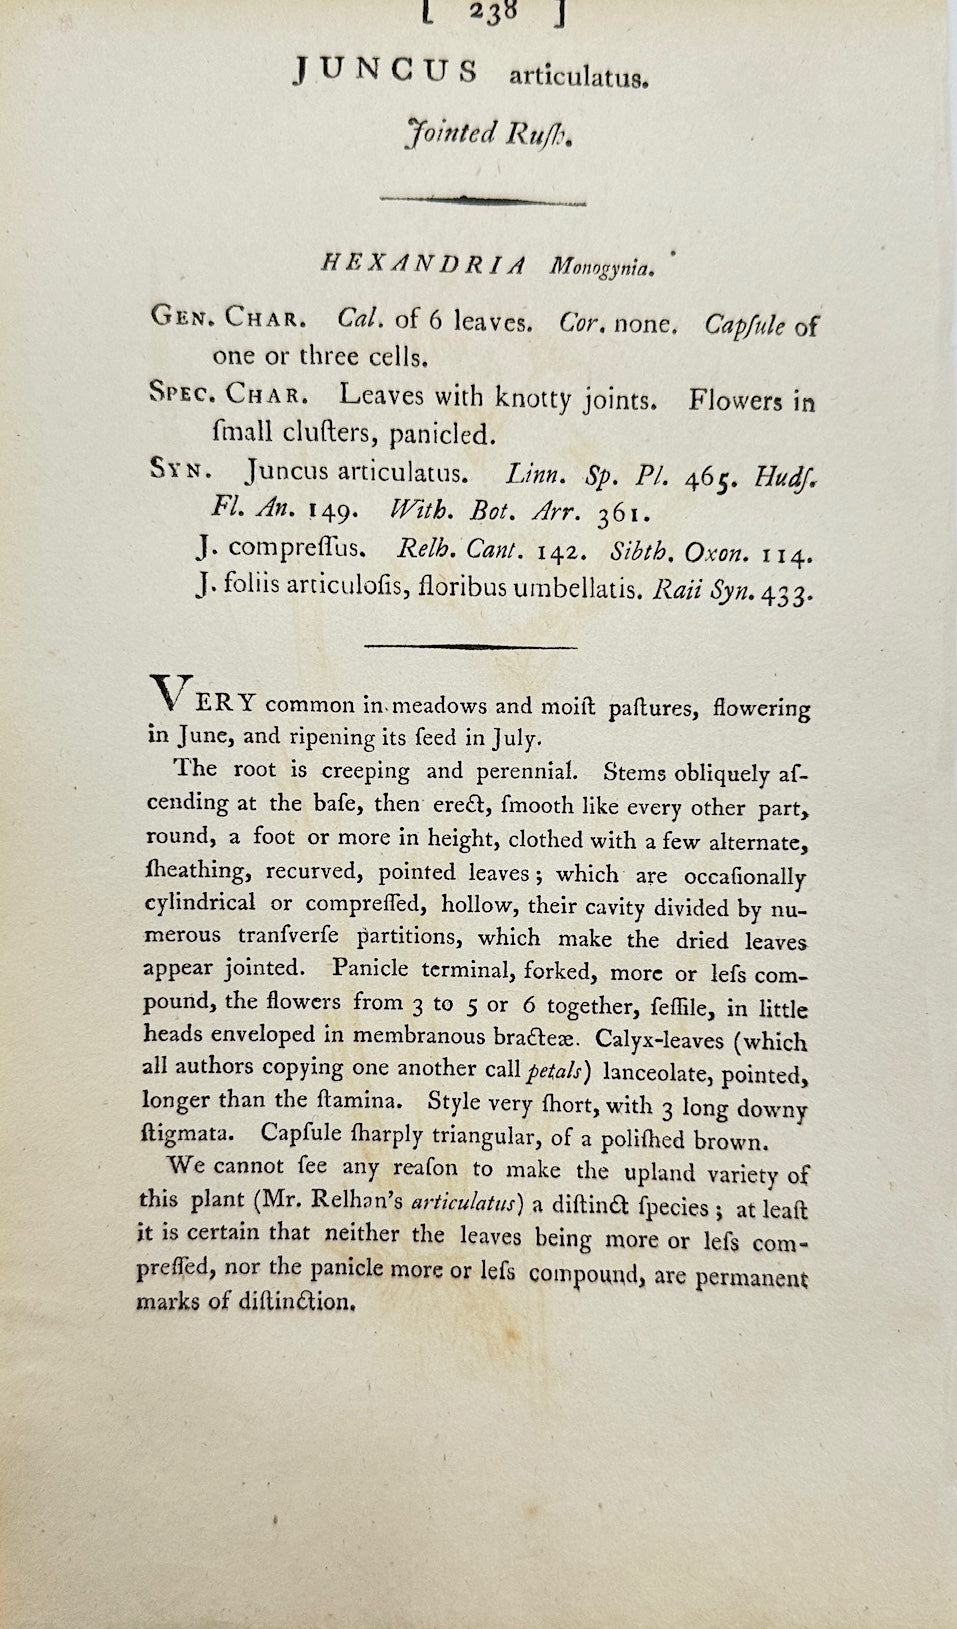 [ 238 ]
JUNCUS articulatus.
Jointed Ruſh.
HEXANDRIA Monogynia.
GEN. CHAR. Cal. of 6 leaves. Cor. none. Capſule of
one or three cells.
SPEC. CHAR. Leaves with knotty joints. Flowers in
ſmall cluſters, panicled.
SYN. Juncus articulatus. Linn. Sp. Pl. 465. Hudſ.
Fl. An. 149. With. Bot. Arr. 361.
J. compreſſus. Relh. Cant. 142. Sibth. Oxon. 114.
J. foliis articuloſis, floribus umbellatis. Raii Syn. 433.
VERY common in meadows and moiſt paſtures, flowering
in June, and ripening its ſeed in July.
The root is creeping and perennial. Stems obliquely aſ-
cending at the baſe, then erect, ſmooth like every other part,
round, a foot or more in height, clothed with a few alternate,
ſheathing, recurved, pointed leaves; which are occaſionally
cylindrical or compreſſed, hollow, their cavity divided by nu-
merous tranſverſe partitions, which make the dried leaves
appear jointed. Panicle terminal, forked, more or leſs com-
pound, the flowers from 3 to 5 or 6 together, ſeſſile, in little
heads enveloped in membranous bracteæ. Calyx-leaves (which
all authors copying one another call petals) lanceolate, pointed,
longer than the ſtamina. Style very ſhort, with 3 long downy
ſtigmata. Capſule ſharply triangular, of a poliſhed brown.
We cannot ſee any reaſon to make the upland variety of
this plant (Mr. Relhan's articulatus) a diſtinct ſpecies; at leaſt
it is certain that neither the leaves being more or leſs com-
preſſed, nor the panicle more or leſs compound, are permanent
marks of diſtinction.